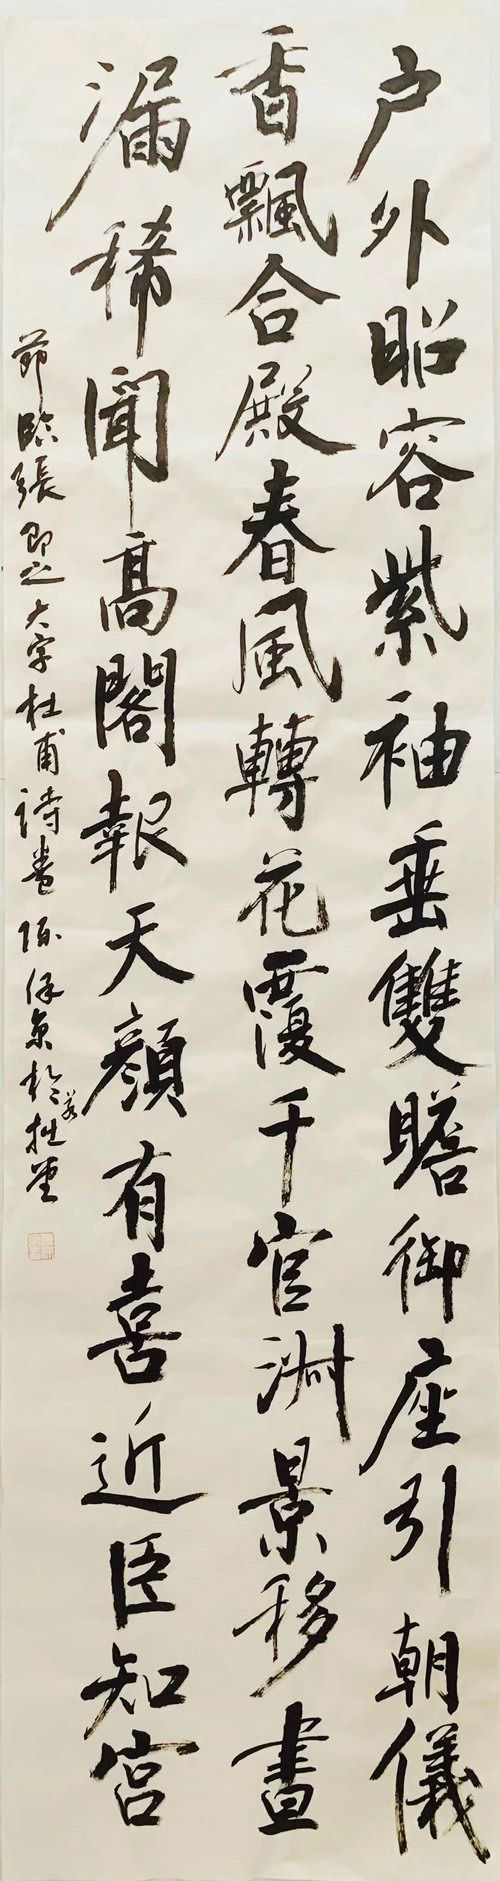 户外昭容紫袖垂雙瞻御座引朝儀
香飄合殿春風轉花覆千官淑景移晝
漏稀聞高閣報天顏有喜近臣知宮
節臨張即之大字杜甫詩卷 於若拙堂